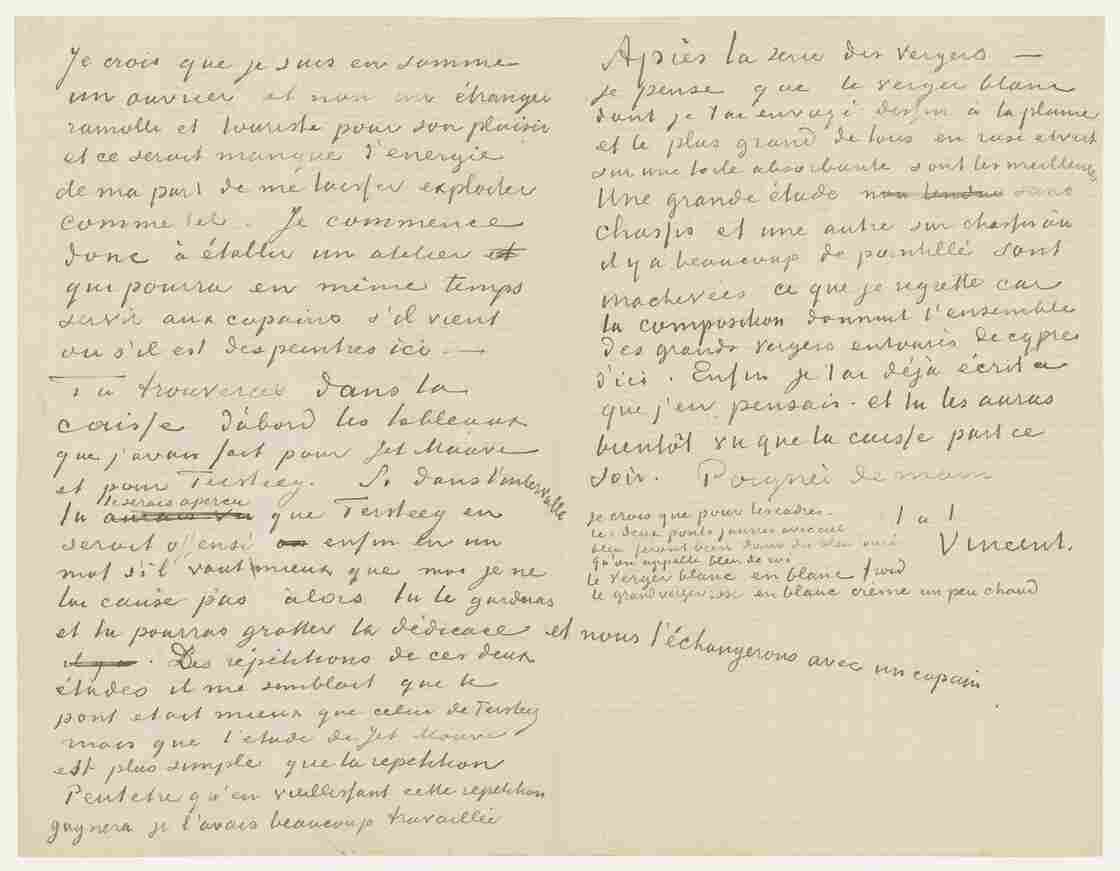 Je crois que je suis en somme
un ouvrier et non un étranger
ramolli et touriste pour son plaisir
et ce serait manque d'energie
de ma part de me laisser exploiter
comme tel. Je commence
donc à établir un atelier et
qui pourra en même temps
servir aux copains s'il vient
ou s'il est des peintres ici. —
Tu trouveras dans la
caisse d'abord les tableaux
que j'avais fait pour Jet Mauve
et pour Tersteeg. Si dans l'intervalle
te serais aperçu
tu aurais vu que Tersteeg en
serait offensé ou enfin en un
mot s'il vaut mieux que moi je ne
lui cause pas alors tu le garderas
et tu pourras gratter la dédicace et nous l'échangerons avec un copain
il y a. Des répétitions de ces deux
études il me semblait que le
pont etait mieux que celui de Tersteeg
mais que l'etude de Jet Mauve
est plus simple que la repetition
Peutetre qu'en vieillissant cette repetition
gagnera je l'avais beaucoup travaillée
Après la serie des vergers —
je pense que le verger blanc
dont je t'ai envoyé dessin à la plume
et le plus grand de tous en rose et vert
sur une toile absorbante sont les meilleurs
Une grande étude non tendue sans
chassis et une autre sur chassis où
il y a beaucoup de pointillé sont
inachevées ce que je regrette car
la composition donnait l'ensemble
des grands vergers entourés de cypres
d'ici. Enfin je t'ai déjà écrit ce
que j'en pensais. et tu les auras
bientôt vu que la caisse part ce
soir. Poignée de main
t. à t.
Vincent.
Je crois que pour les cadres.
Les deux ponts jaunes avec ciel
bleu feront bien dans du bleu
qu'on appelle bleu de roi
le verger blanc en blanc froid
le grand verger rose en blanc crême un peu chaud